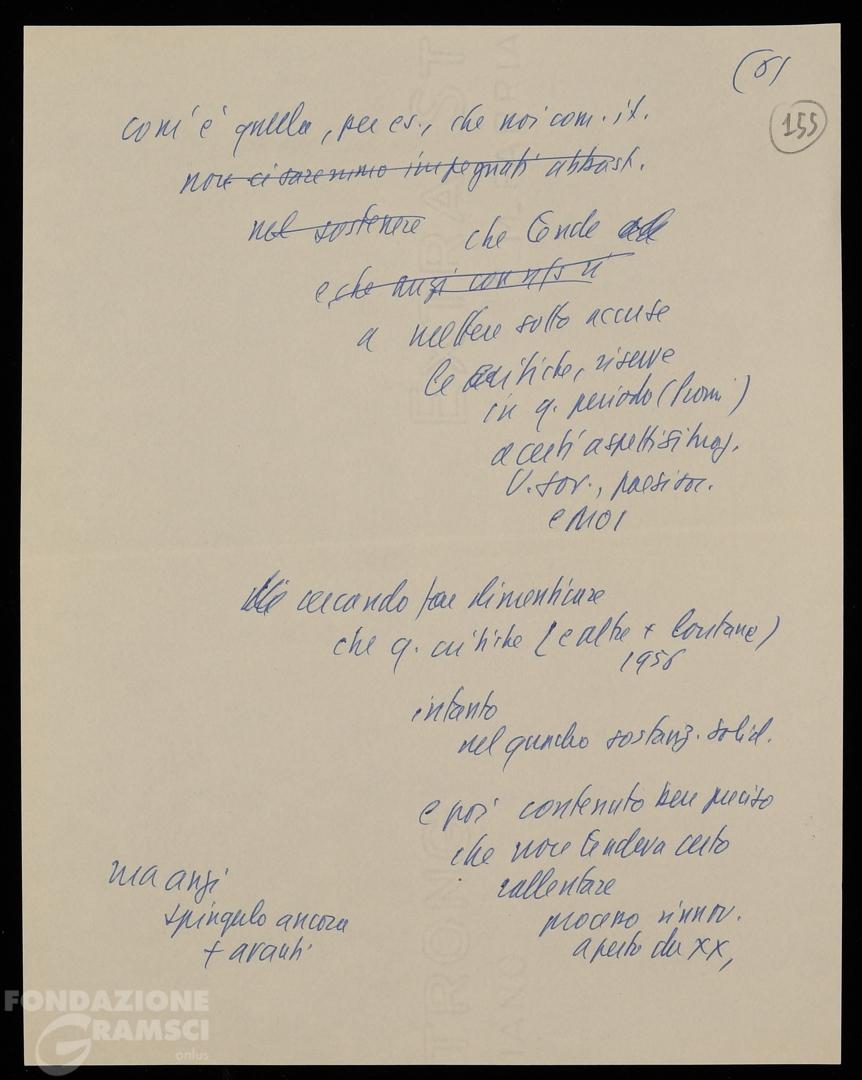 (6)
155
com'è quella, per es., che noi com. it.
non ci saremmo impegnati abbast.
nel sostenere che tende
e che anzi con
a mettere sotto accuse
le critiche, riserve
in q. periodo (Prom.)
a certi aspetti situaz.
U. Sov., paesi soc.
e NOI
cercando far dimenticare
che q. critiche (e altre + lontane)
1956
intanto
nel quadro sostanz. solid.
e poi contenuto ben preciso
che non tendeva certo
rallentare
processo rinnov.
aperto da XX,
ma anzi
spingerlo ancora
+ avanti
FONDAZIONE
GRAMSCI
onlus